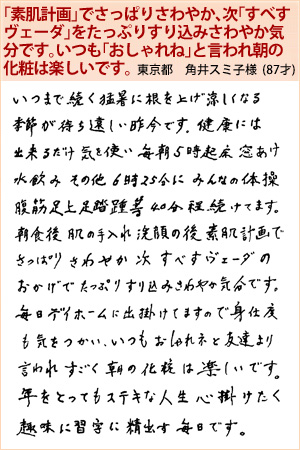 「素肌計画」でさっぱりさわやか、次「すべす
ヴェーダ」をたっぷりすり込みさわやか気
分です。いつも「おしゃれね」と言われ朝の
化粧は楽しいです。 東京都 角井スミ子様 (87才)
いつまで続く猛暑に根を上げ涼しくなる
季節が待ち遠しい昨今です。健康には
出来るだけ気を使い毎朝5時起床 窓あけ
水飲み その他 6時25分に みんなの体操
腹筋足上足踏踵等 40分程続けてます。
朝食後 肌の手入れ 洗顔の後 素肌計画で
さっぱり さわやか 次 すべすヴェーダの
おかげで たっぷりすり込みさわやか気分です。
毎日デイホームに出掛けてますので身仕度
も気をつかい、いつも おしゃれネと友達より
言われ すごく 朝の化粧 は 楽しいです。
年をとっても ステキな人生 心掛けたく
趣味に習字に精出す毎日です。